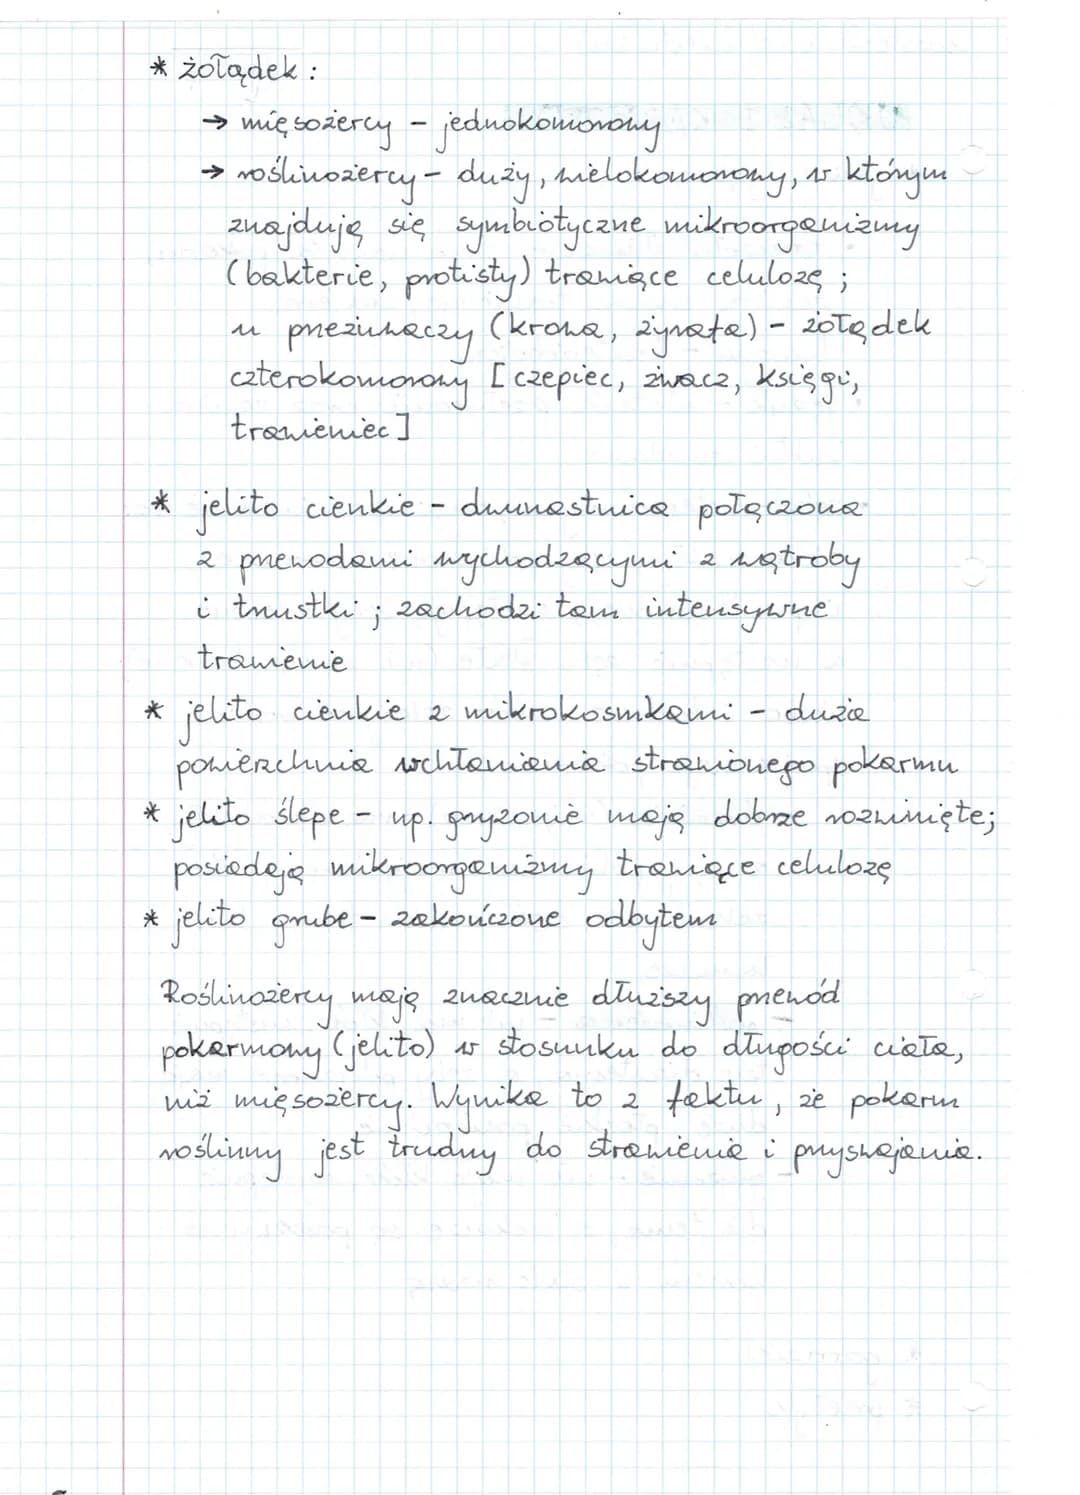 * żołądek :
→ mięsożercy - jednokomorowy
→ roślinożercy - duży, wielokomorowy, w którym
znajdują się symbiotyczne mikroorganizmy
(bakterie, protisty) trawiące celulozę ;
u przeżuwaczy (krowa, żyrafa) - żołądek
czterokomorowy [czepiec, żwacz, księgi,
trawieniec]
* jelito cienkie - dwunastnica połączona
z przewodami wychodzącymi z wątroby
i trzustki ; zachodzi tam intensywne
trawienie
* jelito cienkie z mikrokosmkami - duża
powierzchnia wchłaniania strawionego pokarmu
* jelito ślepe - np. gryzonie mają dobrze rozwinięte;
posiadają mikroorganizmy trawiące celulozę
* jelito grube - zakończone odbytem
Roślinożercy mają znacznie dłuższy przewód
pokarmowy (jelito) w stosunku do długości ciała,
niż mięsożercy. Wynika to z faktu, że pokarm
roślinny jest trudny do strawienia i przyswajania.